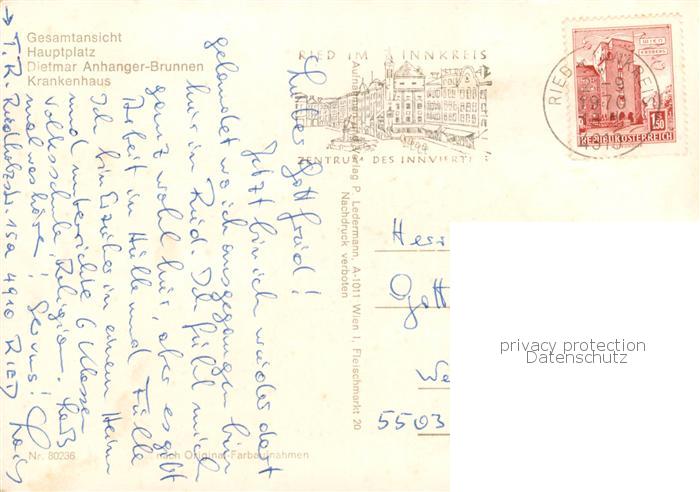 Gesamtansicht
Hauptplatz
Dietmar Anhanger-Brunnen
Krankenhaus
RIED IM INNKREIS
ZENTRUM DES INNVIERTELS
RIED
1970
WIEN
ERDBERG
1.50
REPUBLIK ÖSTERREICH
Aufnahme und Verlag P. Ledermann, A-1011 Wien I, Fleischmarkt 20
Nachdruck verboten
Lieber Gottfried!
Jetzt bin ich wieder dort
gelandet wo ich ausgegangen bin
hier in Ried. Ich fühl mich
ganz wohl hier, aber es gibt
Arbeit in Hülle und Fülle
Ich bin Erzieher in einem Heim
und unterrichte 6 Klassen
Volksschule, Religion. Laß
mal was hören! Servus!
T. R. Riedholzstr. 15a 4910 RIED
Herr
Gott
We
5503
privacy protection
Datenschutz
Nr. 80236
nach Original-Farbaufnahmen